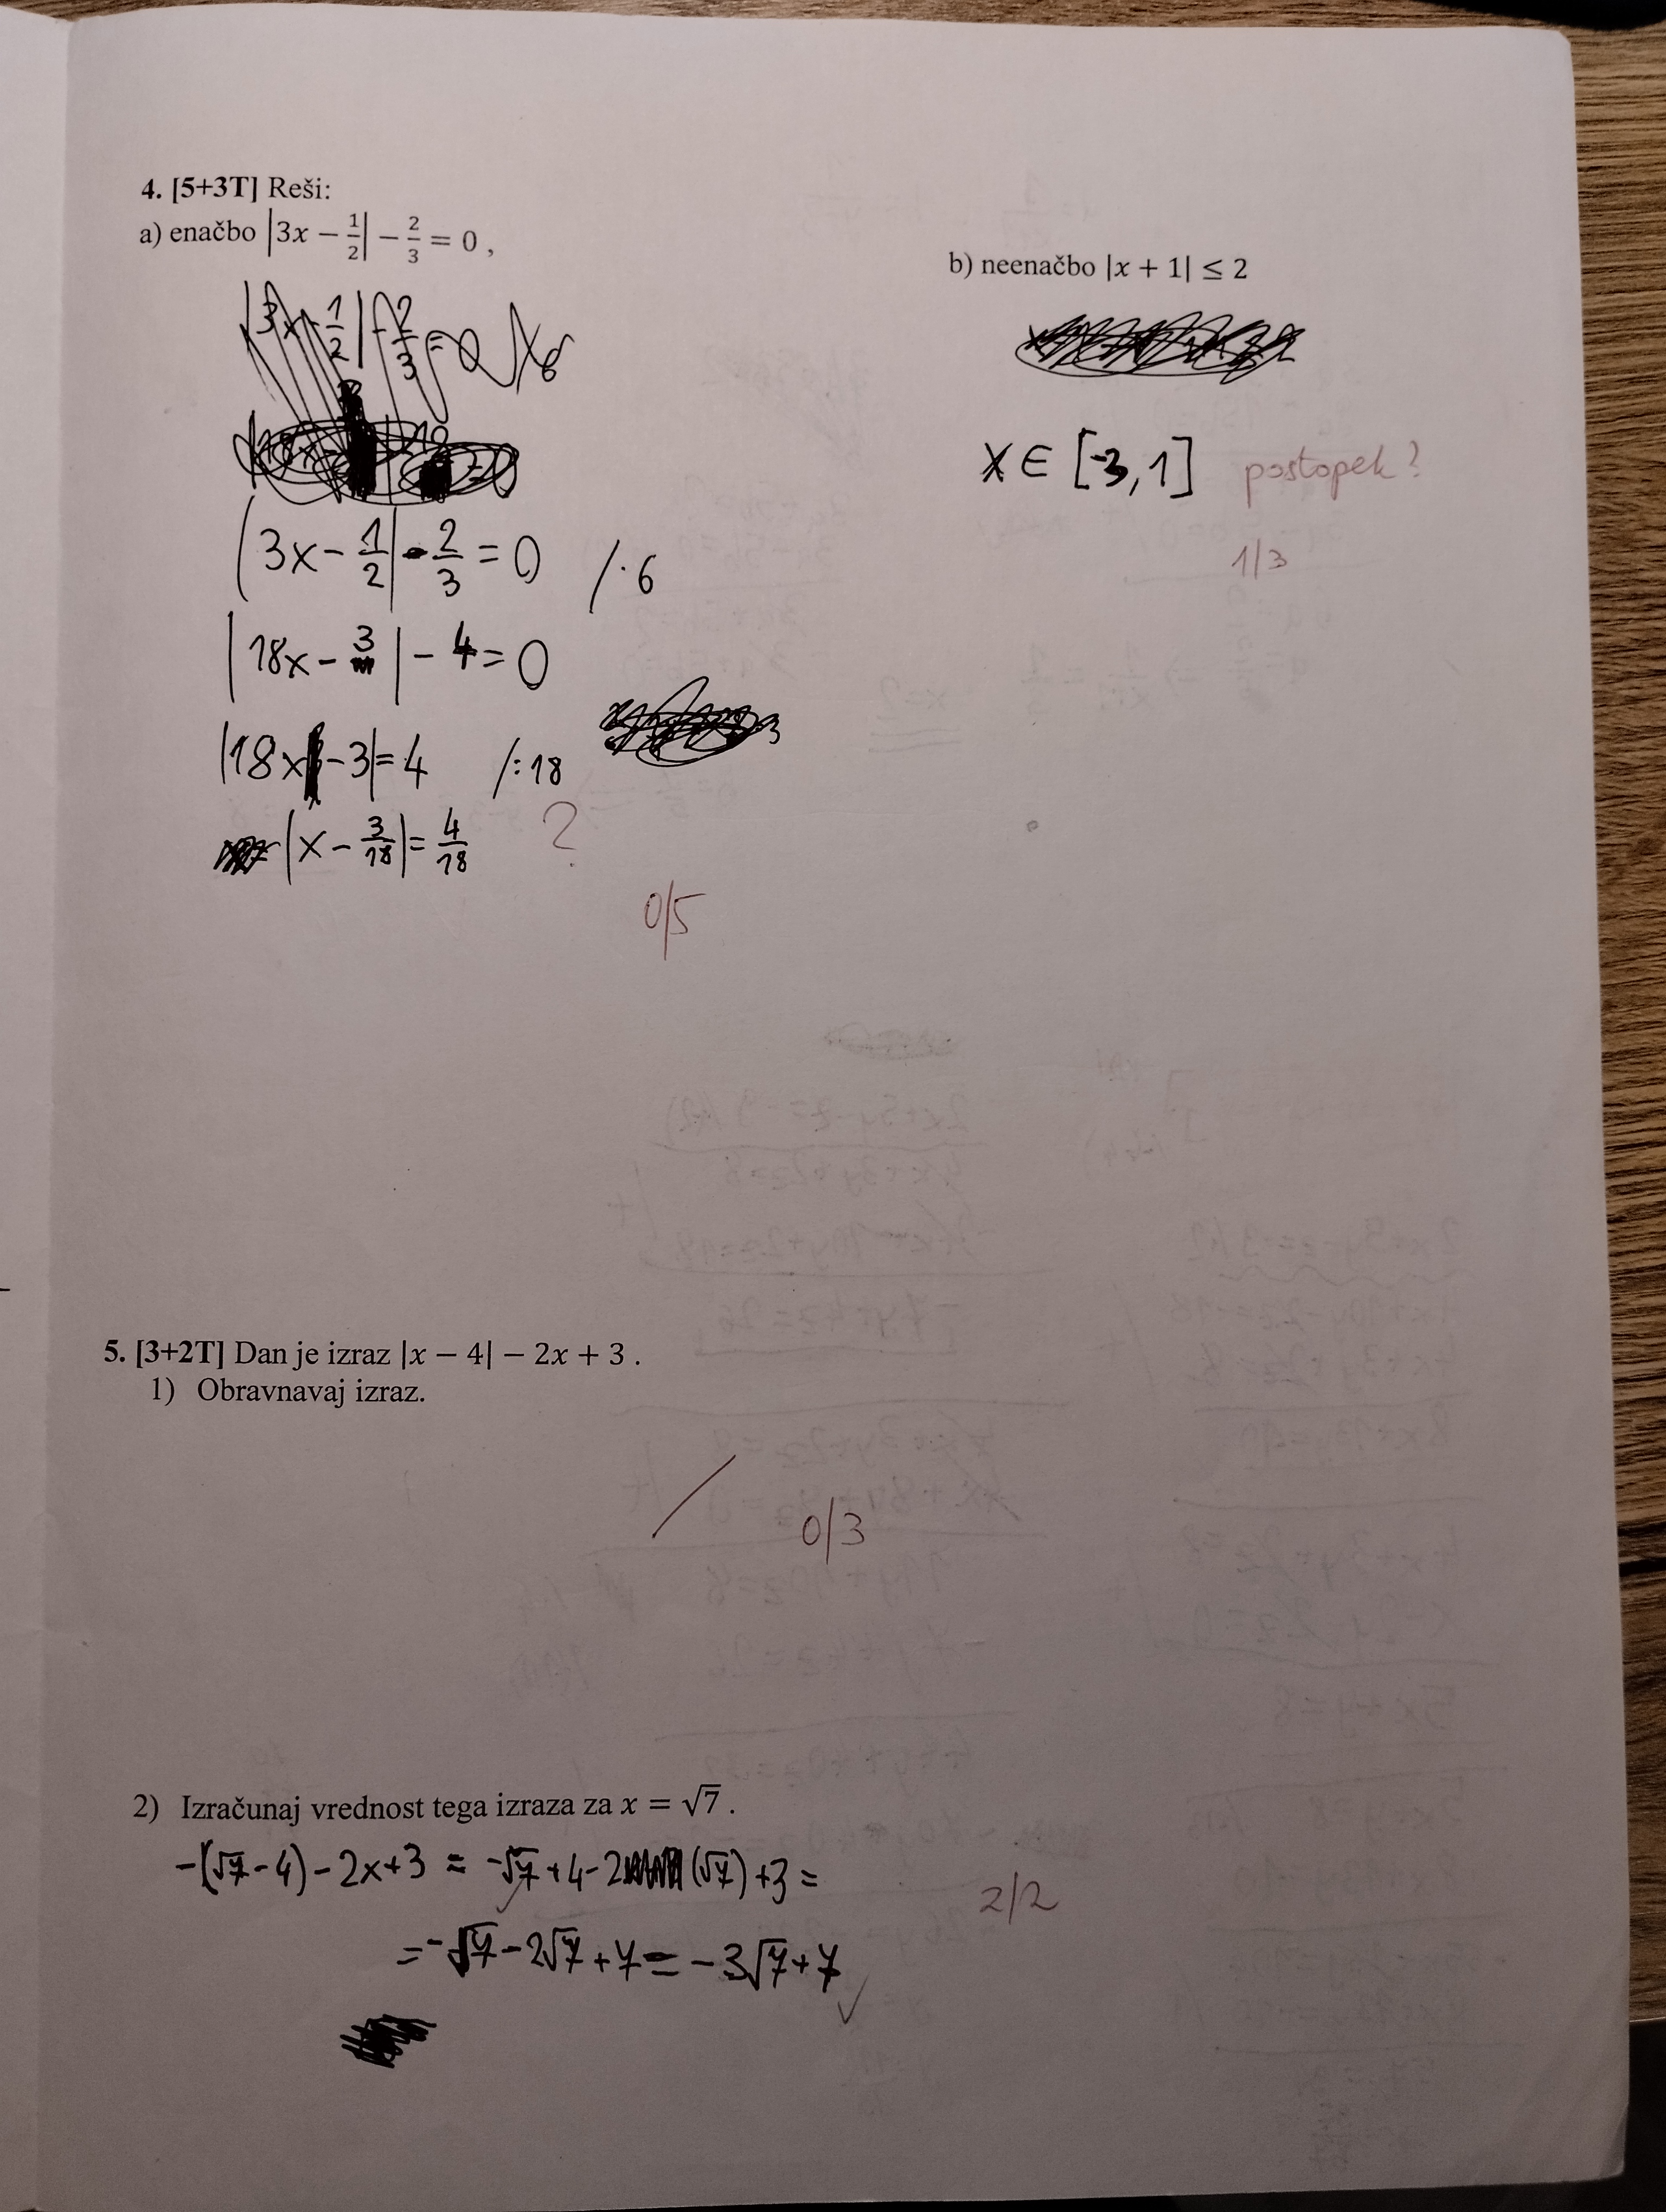 4. [5+3T] Reši:
a) enačbo |3x − 1/2| − 2/3 = 0 ,
|3x − 1/2| − 2/3 = 0 /·6
|18x − 3| − 4 = 0
|18x − 3| = 4 /:18
|x − 3/18| = 4/18 ?
0/5
b) neenačbo |x + 1| ≤ 2
x ∈ [-3, 1] postopek?
1/3
5. [3+2T] Dan je izraz |x − 4| − 2x + 3 .
1) Obravnavaj izraz.
0/3
2) Izračunaj vrednost tega izraza za x = √7 .
-(√7 - 4) - 2x + 3 = -√7 + 4 - 2 (√7) + 3 =
= -√7 - 2√7 + 7 = -3√7 + 7
2/2